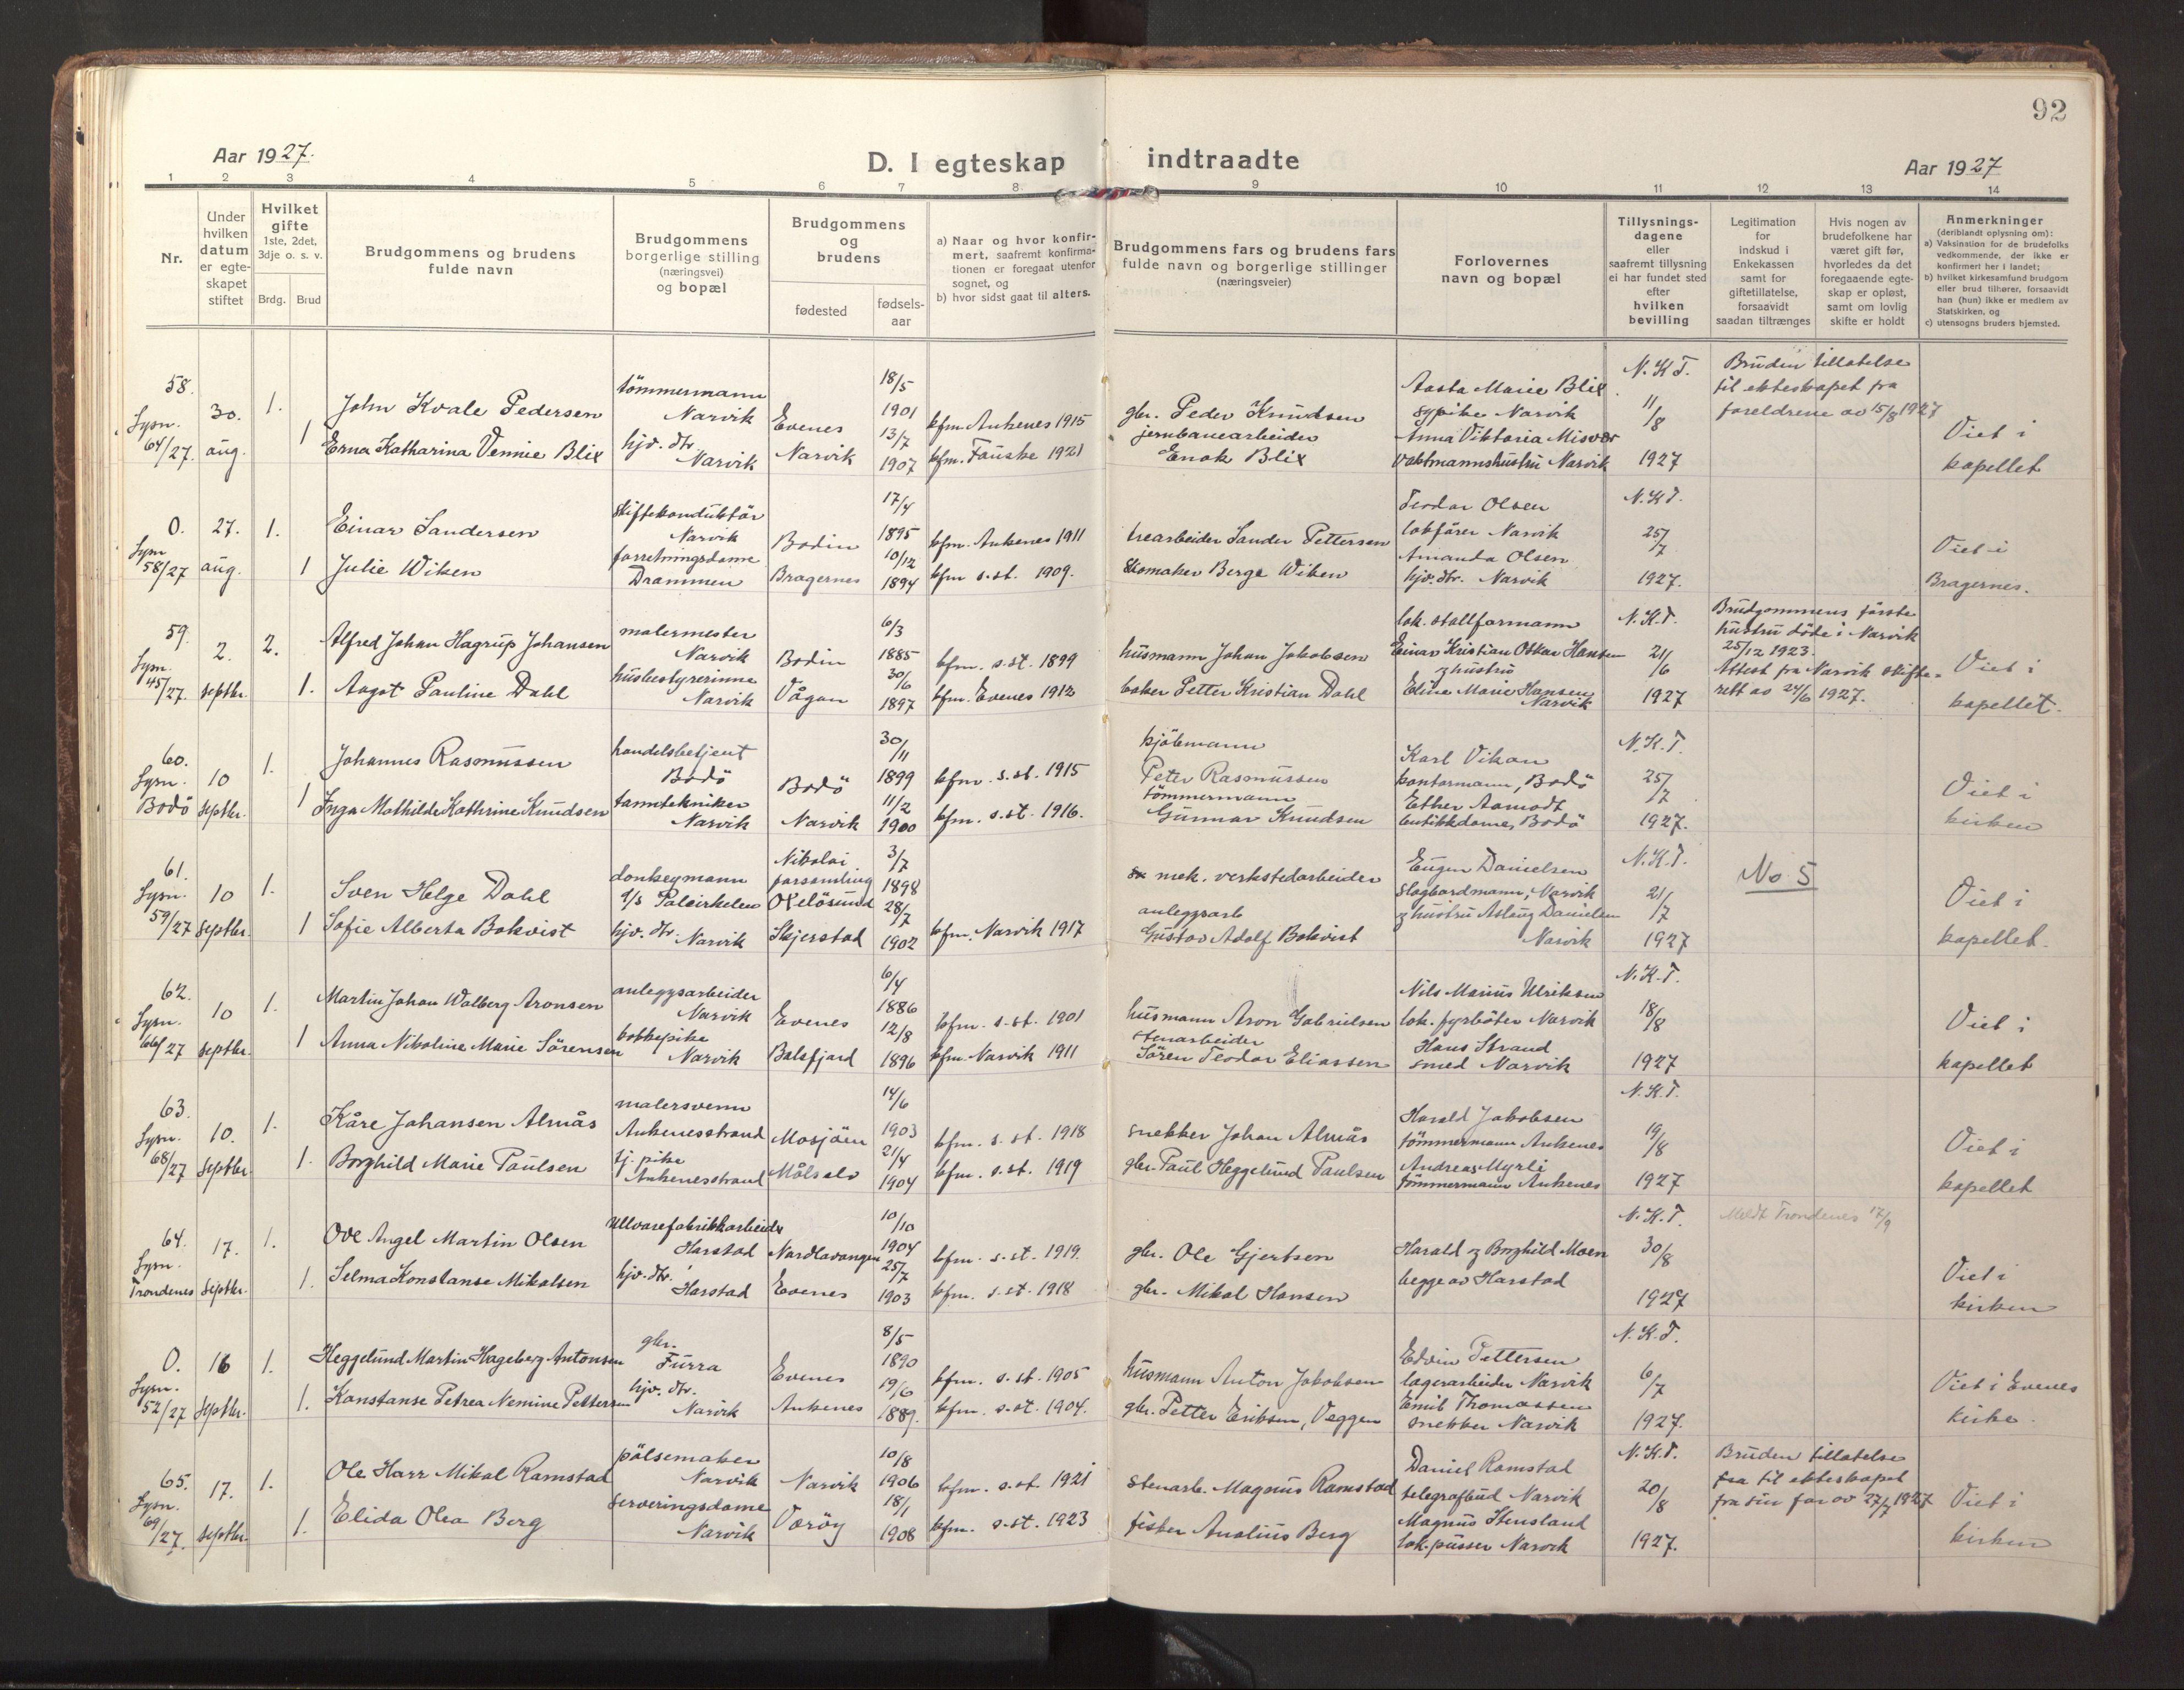 92
Aar 1927.
D. I egteskap indtraadte
Aar 1927
1 2 3 4 5 6 7 8 9 10 11 12 13 14
Nr.
Under hvilken datum er egte-skapet stiftet
Hvilket gifte
1ste, 2det, 3dje o. s. v.
Brdg. Brud
Brudgommens og brudens fulde navn
Brudgommens borgerlige stilling (næringsvei) og bopæl
Brudgommens og brudens
fødested
fødsels-aar
a) Naar og hvor konfir-mert, saafremt konfirma-tionen er foregaat utenfor sognet, og
b) hvor sidst gaat til alters.
Brudgommens fars og brudens fars fulde navn og borgerlige stillinger (næringsveier)
Forlovernes navn og bopæl
Tillysnings-dagene eller saafremt tillysning ei har fundet sted efter hvilken bevilling
Legitimation for indskud i Enkekassen samt for giftetillatelse, forsaavidt saadan tiltrænges
Hvis nogen av brudefolkene har været gift før, hvorledes da det foregaaende egte-skap er opløst, samt om lovlig skifte er holdt
Anmerkninger (deriblandt oplysning om):
a) Vaksination for de brudefolks vedkommende, der ikke er konfirmert her i landet;
b) hvilket kirkesamfund brudgom eller brud tilhører, forsaavidt han (hun) ikke er medlem av Statskirken, og
c) utensogns bruders hjemsted.
58. Lysn. 64/27. 30. aug. 1. 1
John Kvale Pedersen tömmermann Narvik Evenes 18/5 1901 kfm. Ankenes 1915
Erna Katharina Vennie Blix hjv. dtr. Narvik Narvik 13/7 1907 kfm. Fauske 1921
gbr. Peder Knudsen
jernbanearbeider Enok Blix
Aasta Marie Blix sypike Narvik
Anna Viktoria Misvær vaktmannshustru Narvik
N.K.T. 11/8 1927
Bruden tillatelse til ekteskapet fra foreldrene av 15/8 1927
Viet i kapellet
O. Lysn 58/27 27. aug. 1. 1
Einar Sandersen skiftekonduktör Narvik Bodin 17/4 1895 kfm. Ankenes 1911
Julie Wiken forretningsdame Drammen Bragernes 10/12 1894 kfm s.st. 1909.
trearbeider Sander Pettersen
Skomaker Berge Wiken
Teodor Olsen lokförer Narvik
Amanda Olsen hjv. dtr. Narvik
N.K.T. 25/7 1927.
Viet i Bragernes.
59. Lysn. 45/27. 2. septbr. 2. 1.
Alfred Johan Hagrup Johansen malermester Narvik Bodin 6/3 1885 kfm. s.st. 1899
Aagot Pauline Dahl husbestyrerinne Narvik Vågan 30/6 1897 kfm. Evenes 1912
husmann Johan Jakobsen
baker Petter Kristian Dahl
lok. stallformann Einar Kristian Oskar Hansen
og hustru Eline Marie Hansen, Narvik
N.K.T. 21/6 1927
Brudgommens förste hustru döde i Narvik 25/12 1923. Attest fra Narvik skifte-rett av 24/6 1927.
Viet i kapellet.
60. Lysn. Bodö 10 septbr. 1. 1
Johannes Rasmussen handelsbetjent Bodö Bodö 30/11 1899 kfm. s.st. 1915
Inga Mathilde Kathrine Knudsen tanntekniker Narvik Narvik 11/2 1900 kfm. s.st. 1916.
kjöbmann Peter Rasmussen
tömmermann Gunnar Knudsen
Karl Vikan kontormann, Bodö
Esther Aamodt butikkdame, Bodö
N.K.T. 25/7 1927.
Viet i kirken
61. Lysn. 59/27 10 septbr. 1. 1
Sven Helge Dahl donkeymann d/s Polcirkelen Nikolai forsamling Oxelösund 3/7 1898
Sofie Alberta Bokvist hjv. dtr. Narvik Skjerstad 28/7 1902 kfm. Narvik 1917
mek. verkstedarbeider
anleggsarb Gustav Adolf Bokvist
Eugen Danielsen slagbordmann, Narvik
og hustru Aslaug Danielsen Narvik
N.K.T. 21/7 1927
No 5
Viet i kapellet.
62. Lysn. 66/27 10 septbr. 1. 1
Martin Johan Walberg Aronsen anleggsarbeider Narvik Evenes 6/4 1886 kfm. s.st. 1901
Anna Nikoline Marie Sörensen kokkepike Narvik Balsfjord 12/8 1896 kfm Narvik 1911
husmann Aron Gabrielsen
stenarbeider Sören Teodor Eliassen
Nils Marius Ulriksen lok. fyrböter Narvik
Hans Strand smed Narvik
N.K.T. 18/8 1927
Viet i kapellet
63. Lysn. 68/27 10. septbr. 1. 1.
Kåre Johansen Almås malersvenn Ankenesstrand Mosjöen 14/6 1903 kfm. s.st. 1918
Borghild Marie Paulsen tj. pike Ankenesstrand Målselv 21/4 1904 kfm. s.st. 1919
snekker Johan Almås
gbr. Paul Heggelund Paulsen
Harald Jakobsen tömmermann Ankenes
Andreas Myrli tömmermann Ankenes
N.K.T. 19/8 1927
Viet i kapellet
64. Lysn. Trondenes 17. septbr. 1. 1.
Ove Angel Martin Olsen Ullvarefabrikkarbeider Harstad Nordlavangen 10/10 1904 kfm. s.st. 1919.
Selma Konstanse Mikalsen hjv. dtr. Harstad Evenes 25/7 1903 kfm. s.st. 1918
gbr. Ole Gjertsen
gbr. Mikal Hansen
Harald og Borghild Moen begge av Harstad
N.K.T. 30/8 1927
Meldt Trondenes 17/9
Viet i kirken
O. Lysn. 52/27 16 septbr. 1. 1.
Heggelund Martin Hageberg Antonsen gbr. Furra Evenes 8/5 1890 kfm. s.st. 1905
Konstanse Petrea Nemine Pettersen hjv. dtr. Narvik Ankenes 19/6 1889. kfm. s.st. 1904.
husmann Anton Jakobsen
gbr. Petter Eriksen, Veggen
Edvin Pettersen lagerarbeider Narvik
Emil Thomassen snekker Narvik
N.K.T. 6/7 1927.
Viet i Evenes kirke.
65. Lysn. 69/27. 17. septbr. 1. 1.
Ole Harr Mikal Ramstad pölsemaker Narvik Narvik 10/8 1906 kfm. s.st. 1921
Elida Olea Berg Serveringsdame Narvik Væröy 18/1 1908 kfm. s.st. 1923
stenarb. Magnus Ramstad
fisker Analius Berg
Daniel Ramstad telegrafbud Narvik
Magnus Stensland lok. pusser Narvik
N.K.T. 20/8 1927.
Bruden tillatelse til ekteskapet fra sin far av 27/7 1927
Viet i kirken